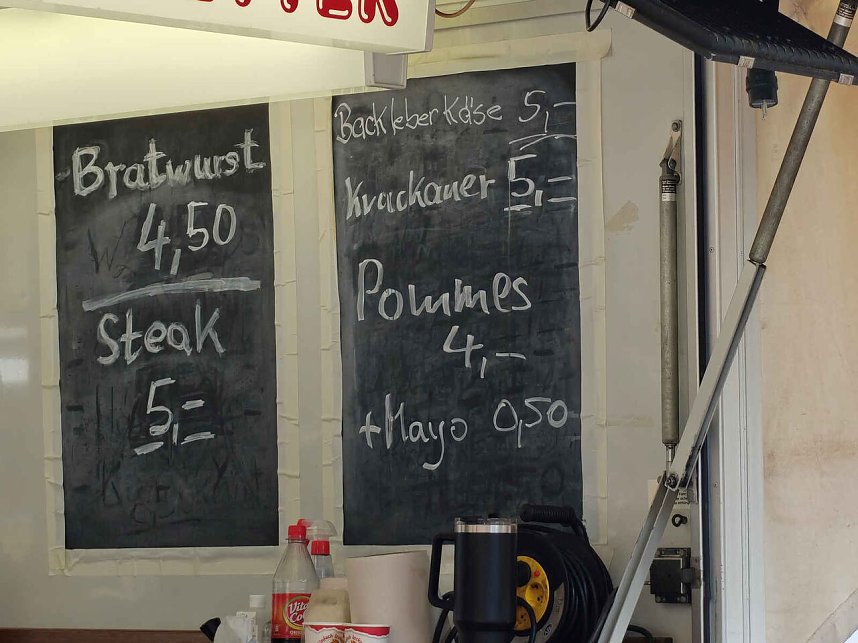 Bratwurst
4,50
Steak
5,=
Backleberkäse 5,-
Krackauer 5,=
Pommes
4,-
+Mayo 0,50
Vita
Cola